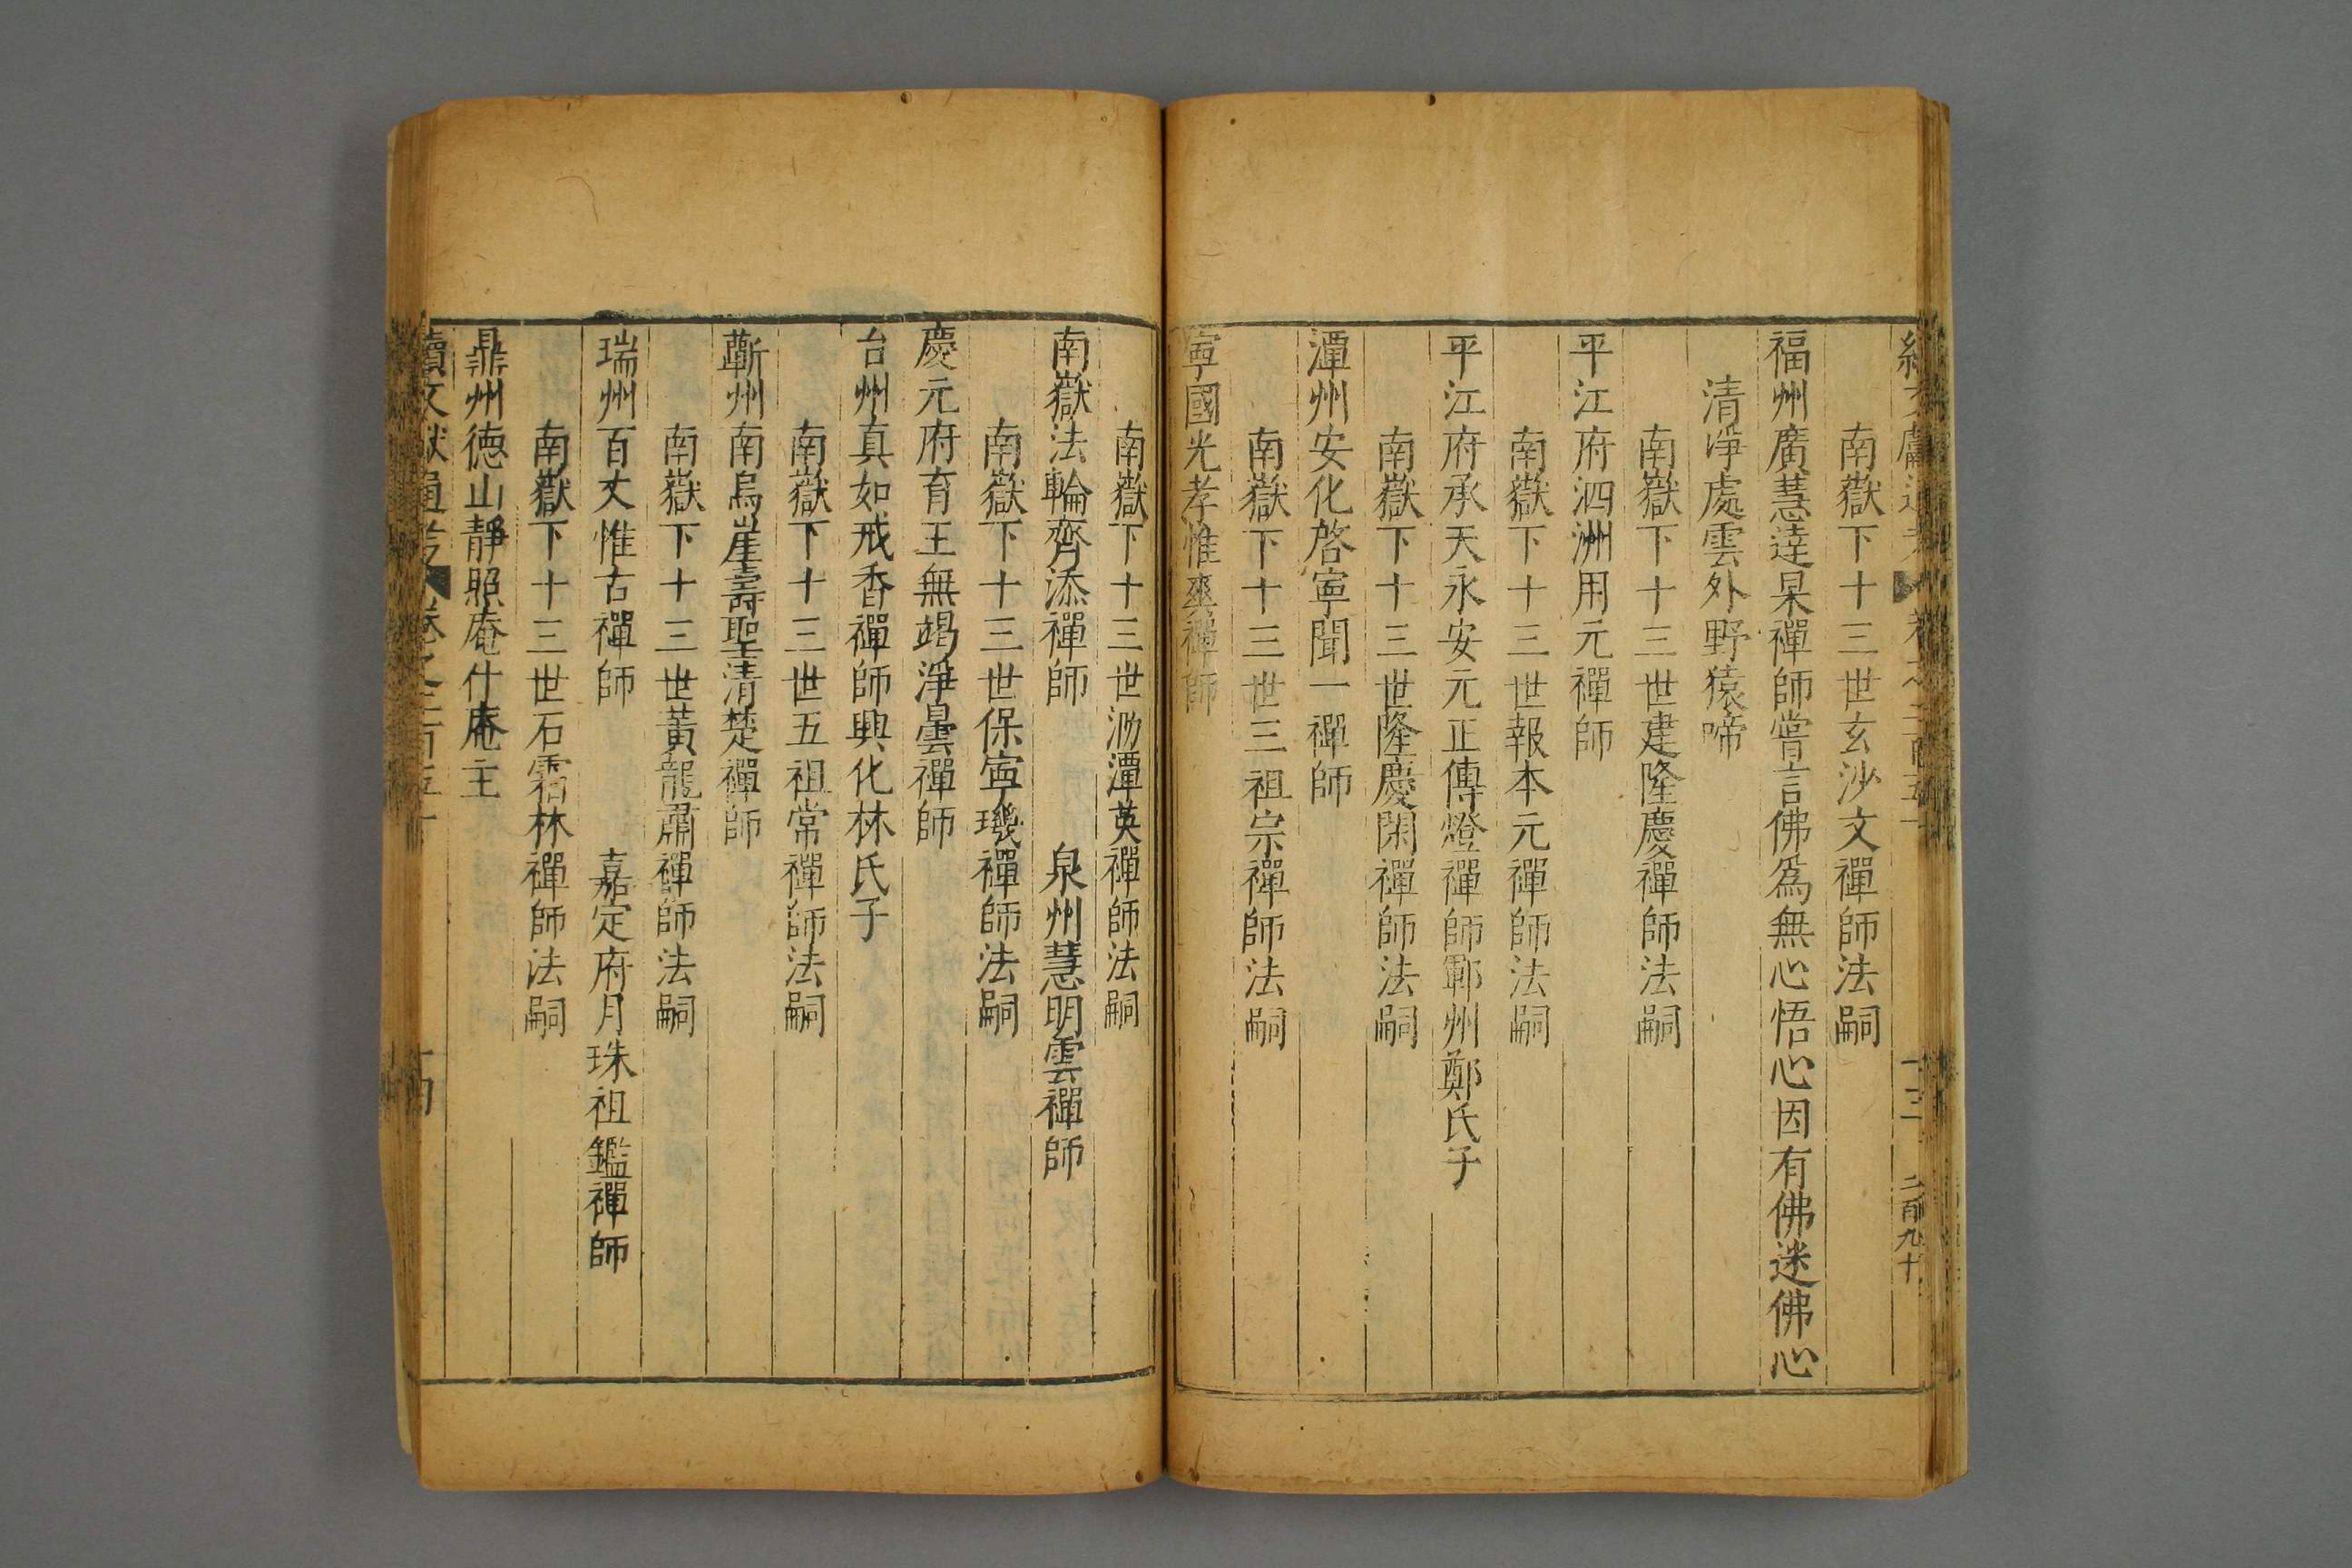 南嶽下十三世玄沙文禪師法嗣
福州廣慧達杲禪師嘗言佛爲無心悟心因有佛迷佛心
清淨處雲外野猿啼
南嶽下十三世建隆慶禪師法嗣
平江府泗洲用元禪師
南嶽下十三世報本元禪師法嗣
平江府承天永安元正傳燈禪師鄆州鄭氏子
南嶽下十三世隆慶閑禪師法嗣
潭州安化啓寧聞一禪師
南嶽下十三世三祖宗禪師法嗣
寧國光孝惟爽禪師
十三
二百九十
南嶽下十三世泐潭英禪師法嗣
南嶽法輪齊添禪師 泉州慧明雲禪師
南嶽下十三世保寧璣禪師法嗣
慶元府育王無竭淨曇禪師
台州真如戒香禪師興化林氏子
南嶽下十三世五祖常禪師法嗣
蘄州南烏崖壽聖清楚禪師
南嶽下十三世黃龍肅禪師法嗣
瑞州百丈惟古禪師 嘉定府月珠祖鑑禪師
南嶽下十三世石霜林禪師法嗣
鼎州德山靜照庵什庵主